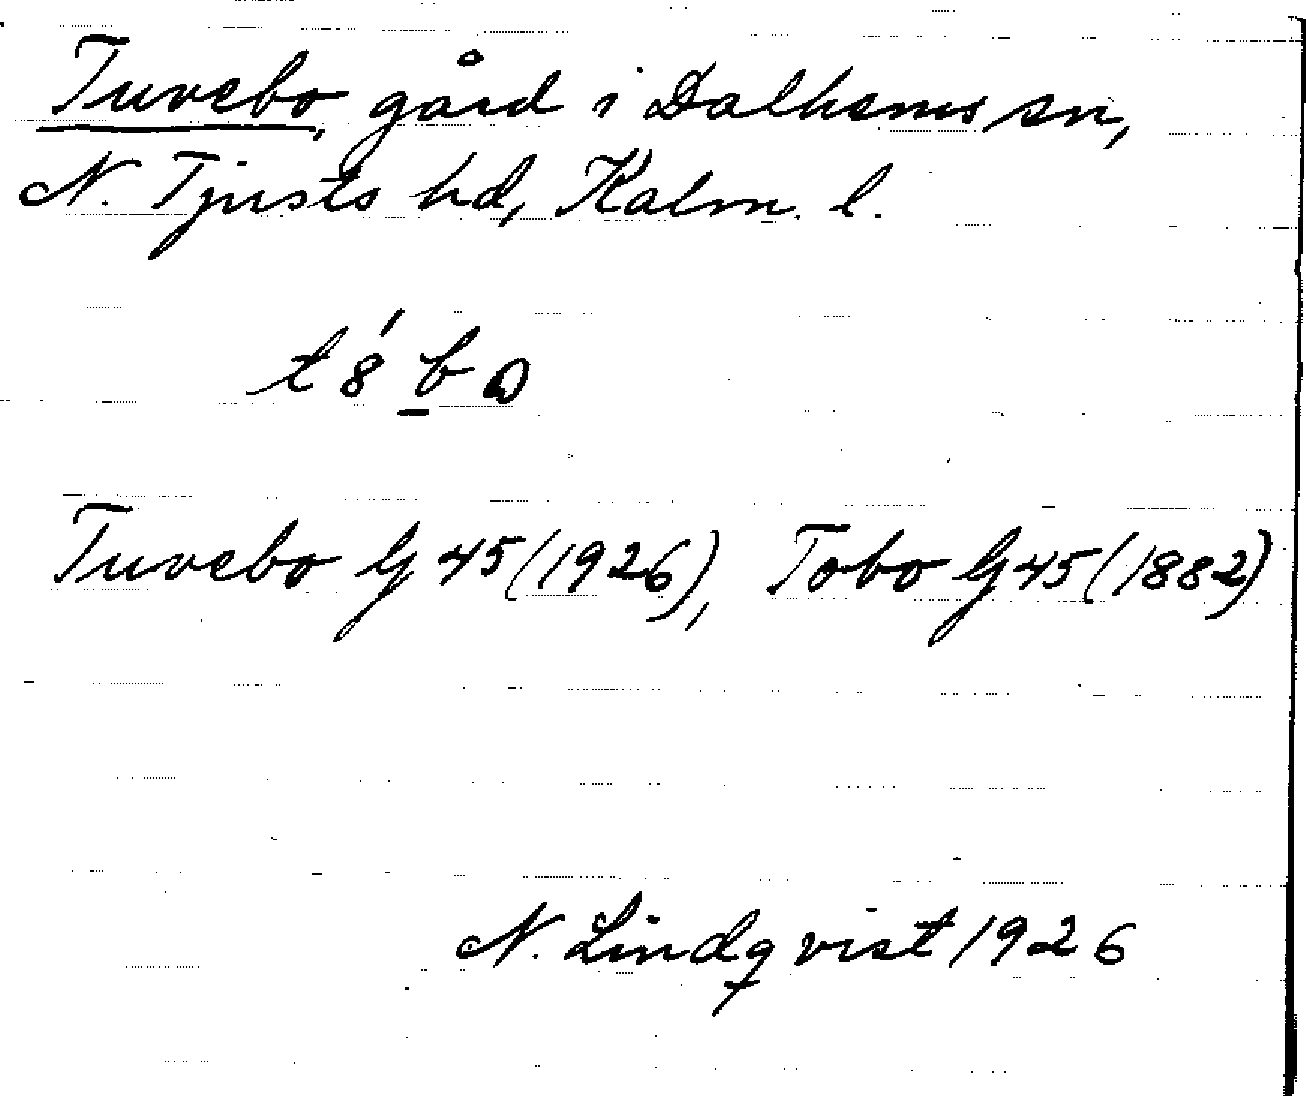 Tuvebo, gård i Dalhems sn,
N. Tjusts hd, Kalm. l.
t8́b̲ɷ
Tuvebo G 45 (1926), Tobo G 45 (1882)
N. Lindqvist 1926